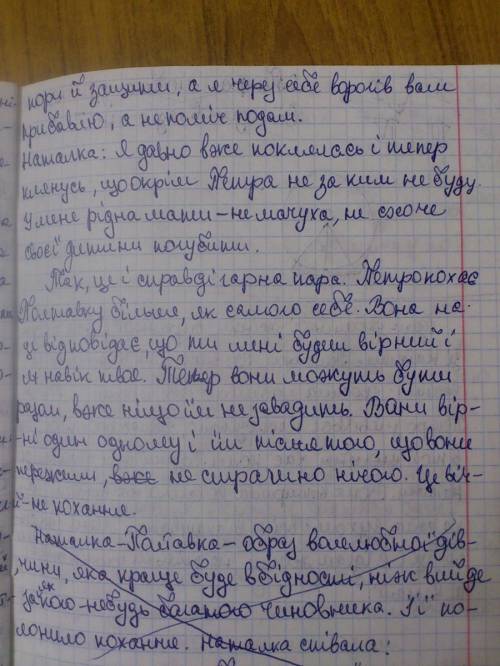 пори й защити, а я через себе ворогів вам
прибавлю, а не поміч подам.
Наталка: Я давно вже поклялась і тепер
клянусь, що окрім Петра не за ким не буду.
У мене рідна мати – не мачуха, не схоче
своєї дитини погубити.
Так, це і справді гарна пара. Петро кохає
Полтавку більше, як самого себе. Вона на
це відповідає, що ти мені будеш вірний і
я навік твоя. Тепер вони можуть бути
разом, вже ніщо їм не завадить. Вони вір-
ні один одному і їм після того, що вони
пережили, вже не страшно нічого. Це віч-
не кохання.
Наталка-Полтавка – образ волелюбної дів-
чини, яка краще буде в бідності, ніж вийде
за якого-небудь багатого чиновника. Її по-
лонило кохання. Наталка співала: